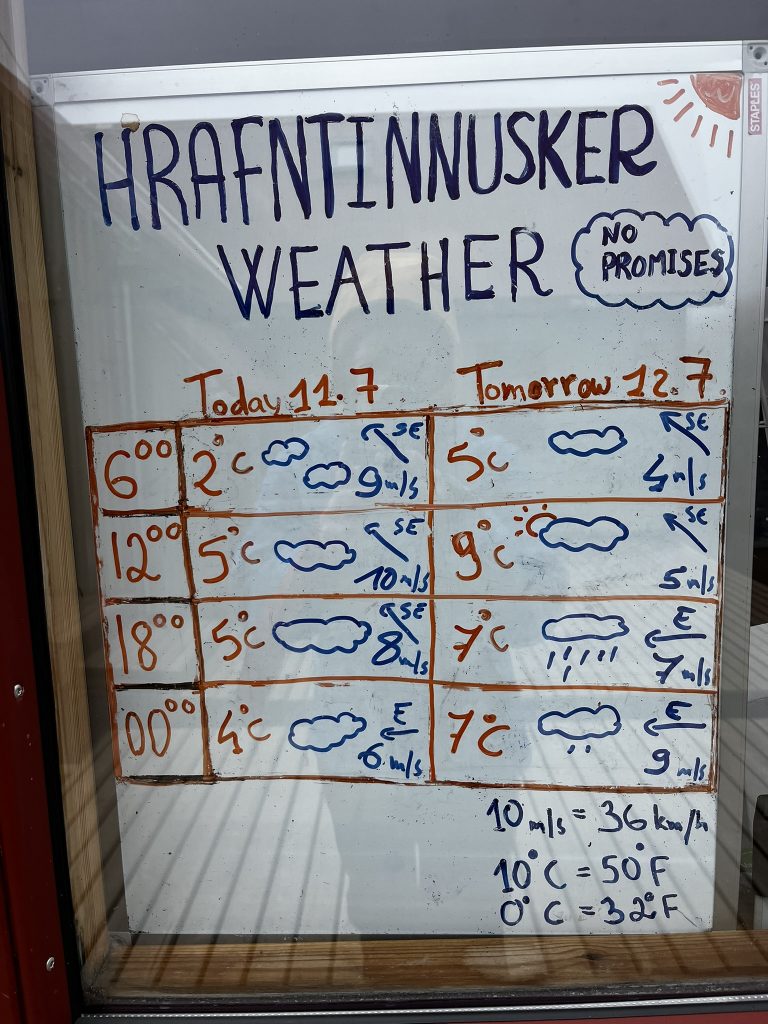 STAPLES
HRAFNTINNUSKER
WEATHER
NO
PROMISES
Today 11.7 Tomorrow 12.7.
6⁰⁰ 2°C SE 9m/s 5°C SE 4m/s
12⁰⁰ 5°C SE 10m/s 9°C SE 5m/s
18⁰⁰ 5°C SE 8m/s 7°C E 7m/s
00⁰⁰ 4°C E 6m/s 7°C E 9m/s
10m/s = 36km/h
10°C = 50°F
0°C = 32°F